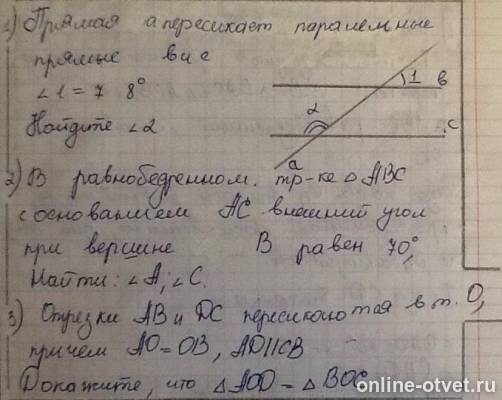 1) Прямая а пересикает паралельные
прямые в и с
∠1 = 7 8°
Найдите ∠2
1 в
2
с
а
2) В равнобедренном. тр-ке △ АВС
с основанием АС внешний угол
при вершине В равен 70°,
Найти: ∠А; ∠С.
3) Отрезки АВ и DC пересикаются в т. О,
причем АО=ОВ, AD||CB
Докажите, что △AOD = △BOC
online-otvet.ru